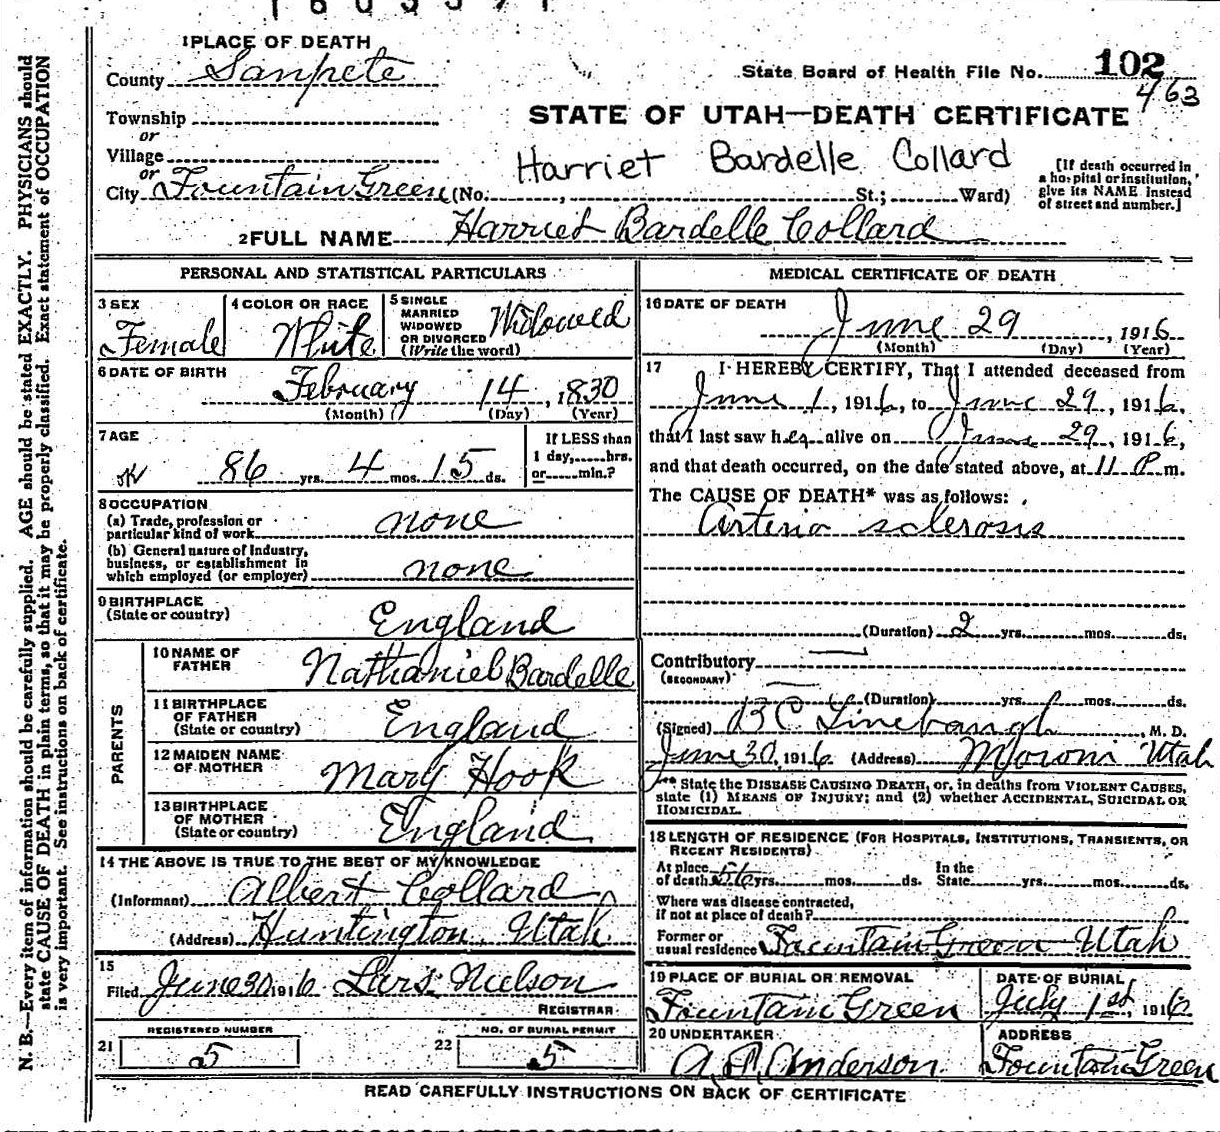 1 PLACE OF DEATH
County Sanpete
State Board of Health File No. 102
463
Township
or
Village
or
City Fountain Green (No. , St.; Ward)
STATE OF UTAH—DEATH CERTIFICATE
Harriet Bardelle Collard
[If death occurred in
a hospital or institution,
give its NAME instead
of street and number.]
2 FULL NAME Harriet Bardelle Collard
PERSONAL AND STATISTICAL PARTICULARS
3 SEX
Female
4 COLOR OR RACE
White
5 SINGLE
MARRIED
WIDOWED
OR DIVORCED
(Write the word)
Widowed
6 DATE OF BIRTH
February 14, 1830
(Month) (Day) (Year)
7 AGE
86 yrs. 4 mos. 15 ds.
If LESS than
1 day, hrs.
or min.?
8 OCCUPATION
(a) Trade, profession or
particular kind of work none
(b) General nature of Industry,
business, or establishment in
which employed (or employer) none
9 BIRTHPLACE
(State or country) England
PARENTS
10 NAME OF
FATHER Nathaniel Bardelle
11 BIRTHPLACE
OF FATHER
(State or country) England
12 MAIDEN NAME
OF MOTHER Mary Hook
13 BIRTHPLACE
OF MOTHER
(State or country) England
14 THE ABOVE IS TRUE TO THE BEST OF MY KNOWLEDGE
(Informant) Albert Collard
(Address) Huntington, Utah
15
Filed June 30 1916 Lars Nielson
REGISTRAR
REGISTERED NUMBER
21 5
NO. OF BURIAL PERMIT
22 5
MEDICAL CERTIFICATE OF DEATH
16 DATE OF DEATH
June 29, 1916
(Month) (Day) (Year)
17 I HEREBY CERTIFY, That I attended deceased from
June 1, 1916, to June 29, 1916,
that I last saw her alive on June 29, 1916,
and that death occurred, on the date stated above, at 11 P m.
The CAUSE OF DEATH* was as follows:
Arterio sclerosis
(Duration) 2 yrs. mos. ds.
Contributory
(SECONDARY)
(Duration) yrs. mos. ds.
(Signed) B C Linebaugh, M. D.
June 30, 1916 (Address) Moroni Utah
* State the DISEASE CAUSING DEATH, or, in deaths from VIOLENT CAUSES,
state (1) MEANS OF INJURY; and (2) whether ACCIDENTAL, SUICIDAL OR
HOMICIDAL.
18 LENGTH OF RESIDENCE (FOR HOSPITALS, INSTITUTIONS, TRANSIENTS, OR
RECENT RESIDENTS)
At place
of death 56 yrs. mos. ds.
In the
State yrs. mos. ds.
Where was disease contracted,
if not at place of death?
Former or
usual residence Fountain Green Utah
19 PLACE OF BURIAL OR REMOVAL
Fountain Green
DATE OF BURIAL
July 1st, 1916
20 UNDERTAKER
A. P. Anderson
ADDRESS
Fountain Green
READ CAREFULLY INSTRUCTIONS ON BACK OF CERTIFICATE
N. B.—Every item of information should be carefully supplied. AGE should be stated EXACTLY. PHYSICIANS should
state CAUSE OF DEATH in plain terms, so that it may be properly classified. Exact statement of OCCUPATION
is very important. See instructions on back of certificate.